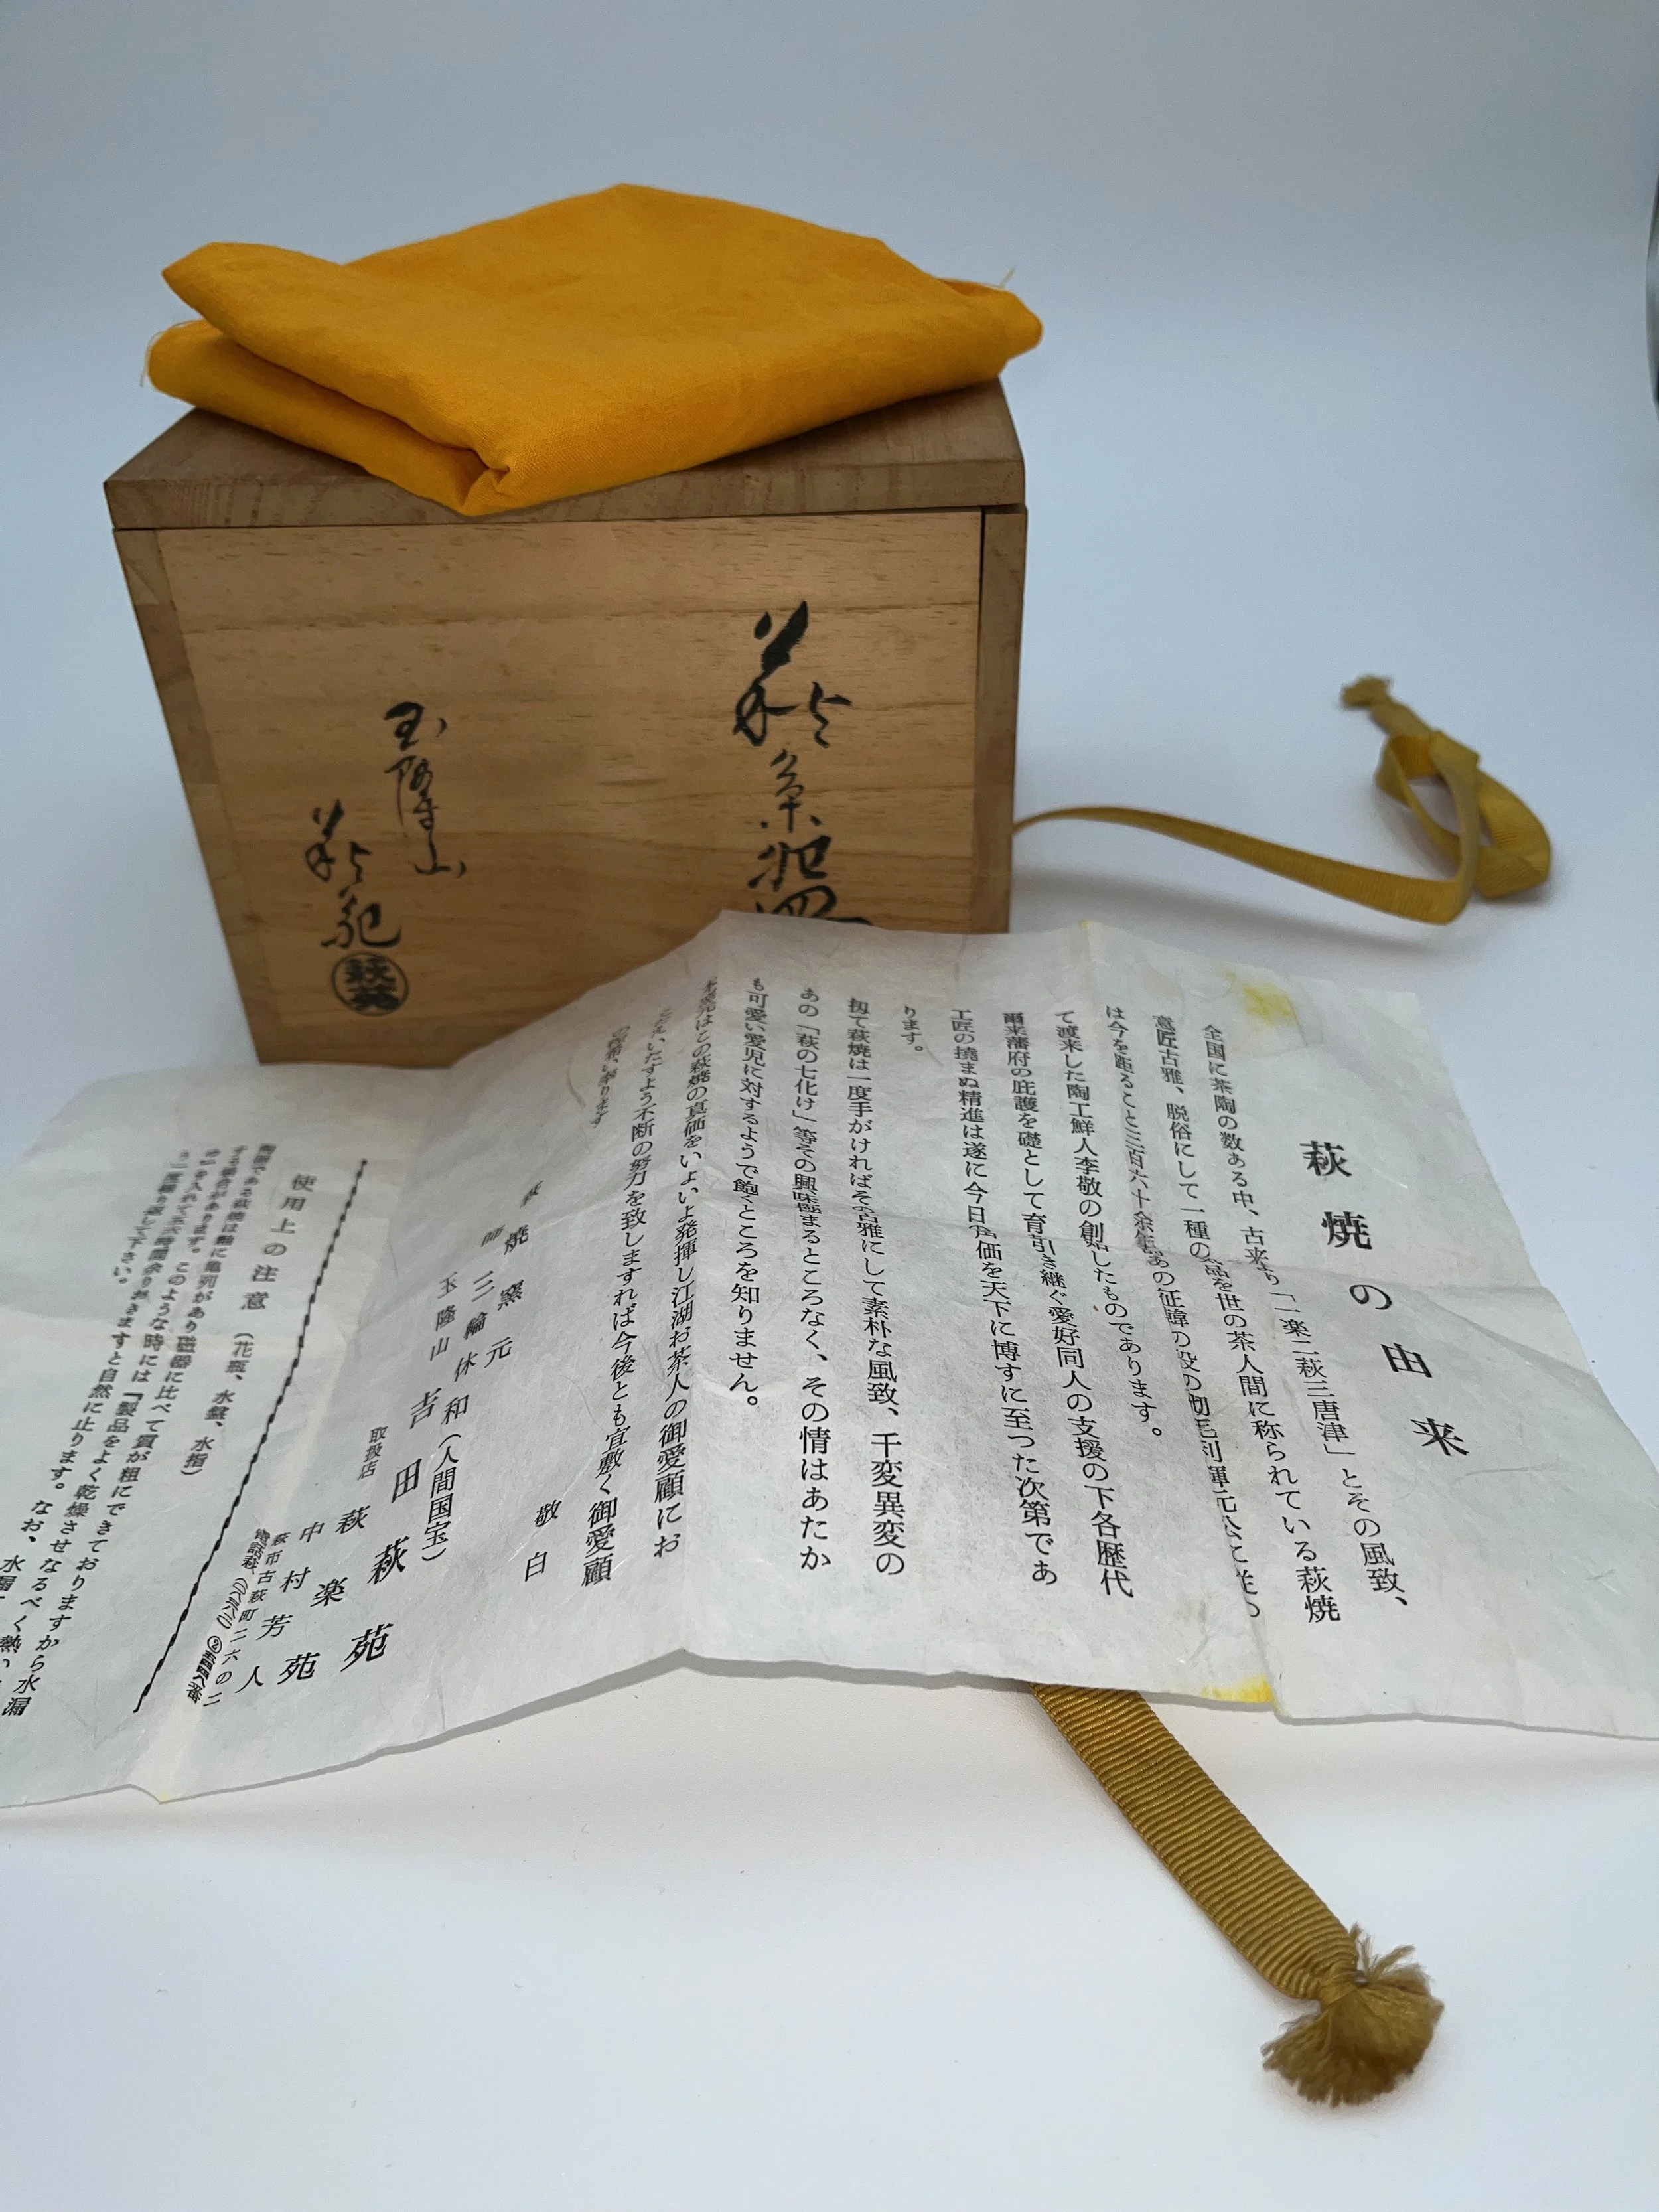 萩
玉隆山
萩苑
萩苑
萩焼の由来
全国に茶陶の数ある中、古来より「一楽二萩三唐津」とその風致、
意匠古雅、脱俗にして一種の 品を世の茶人間に称られている萩焼
は今を距ること三百六十余年 あの征韓の役の砌毛利輝元公に従つ
て渡来した陶工鮮人李敬の創始したものであります。
爾来藩府の庇護を礎として育引き継ぐ愛好同人の支援の下各歴代
工匠の撓まぬ精進は遂に今日 価を天下に博すに至つた次第であ
ります。
扨て萩焼は一度手がければその古雅にして素朴な風致、千変異変の
あの「萩の七化け」等その興味極まるところなく、その情はあたか
も可愛い愛児に対するようで飽くところを知りません。
はこの萩焼の真価をいよいよ発揮し江湖お茶人の御愛顧にお
こたえいたすよう不断の努力を致しますれば今後とも宜敷く御愛顧
の程 願い奉ります
敬白
萩焼窯元
師 三輪休和（人間国宝）
玉隆山 吉田萩苑
取扱店 萩楽苑
中村芳人
萩市古萩町二六の二
使用上の注意（花瓶、水盤、水指）
陶器である萩焼は釉に亀列があり磁器に比べて質が粗にできておりますから水漏
する場合があります。このような時には『製品をよく乾燥させなるべく熱い
を入れて 時間余りおきますと自然に止ります。なお、水漏
一度繰り返して下さい。